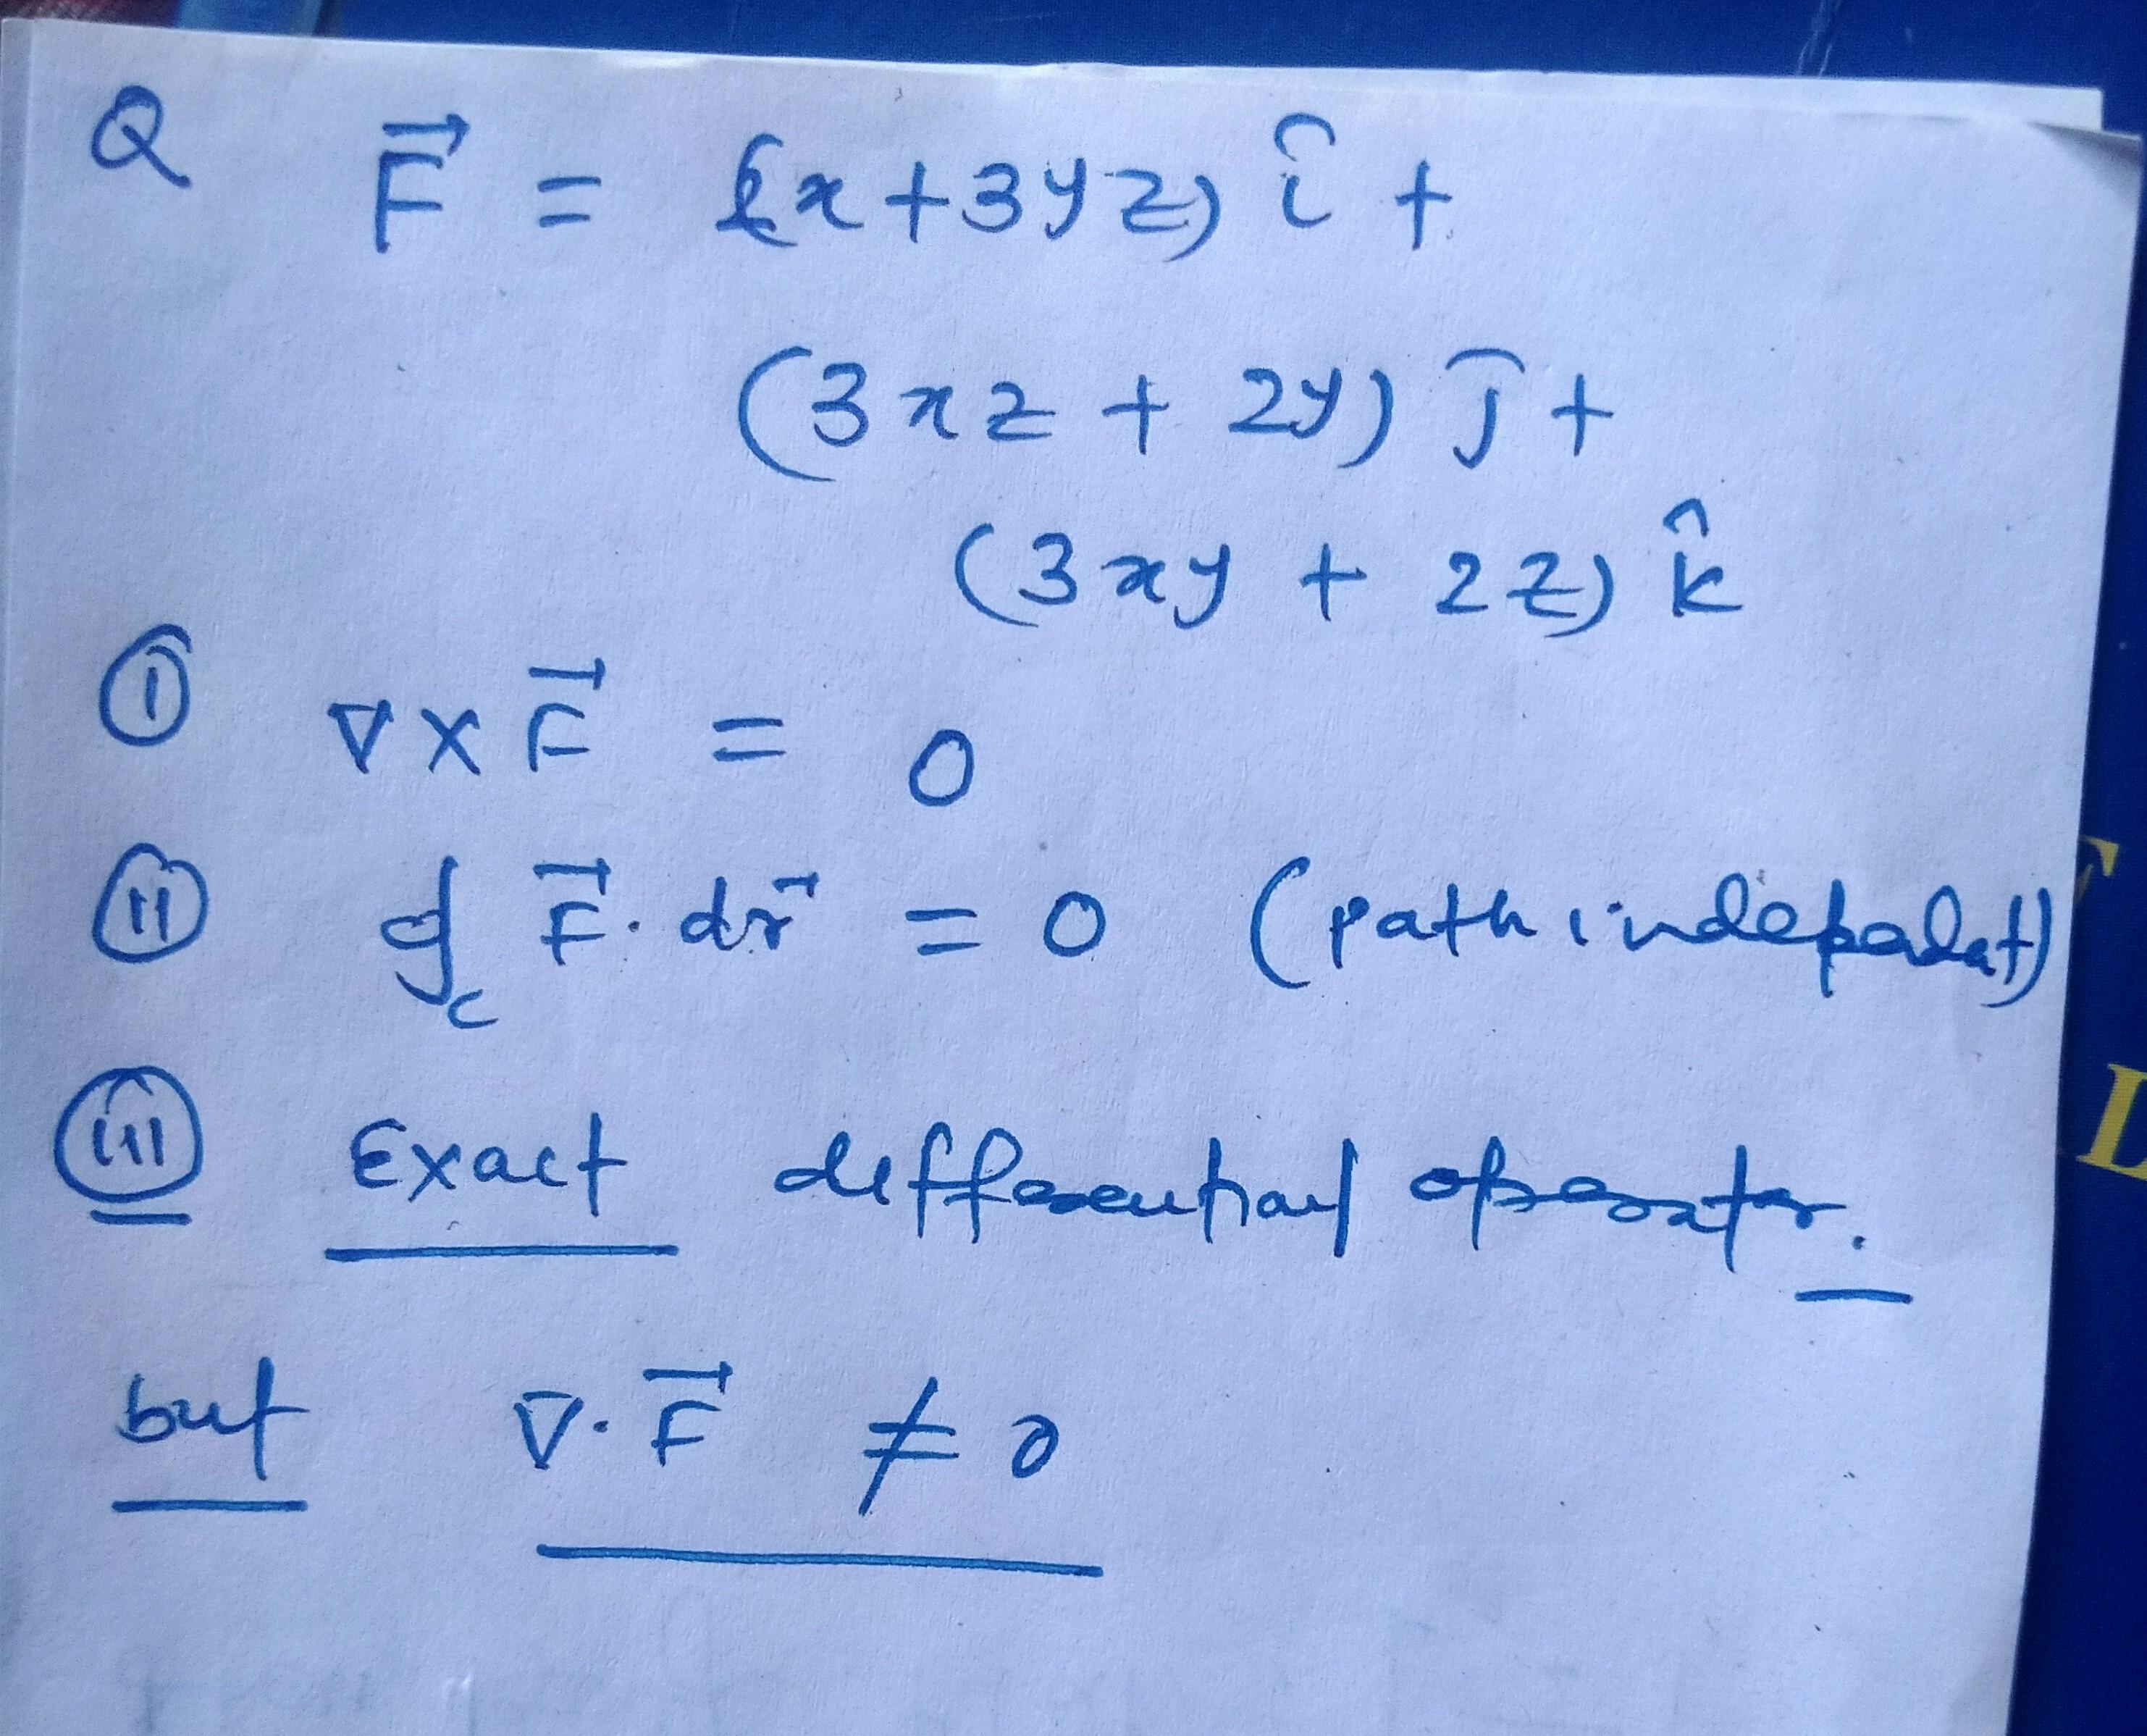 Q F⃗ = (x + 3yz) î +
(3xz + 2y) ĵ +
(3xy + 2z) k̂
① ∇ × F⃗ = 0
ⓘⓘ ∮_C F⃗ . dr⃗ = 0 (path indepedat)
ⓘⓘⓘ Exact differential operator.
but ∇ . F⃗ ≠ 0